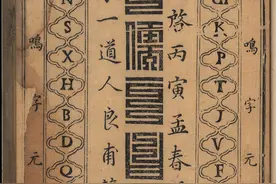 鳴字元
K
P
T
J
V
F
啓丙寅孟春
一道人良甫
N
S
X
H
B
D
Q
鳴字元